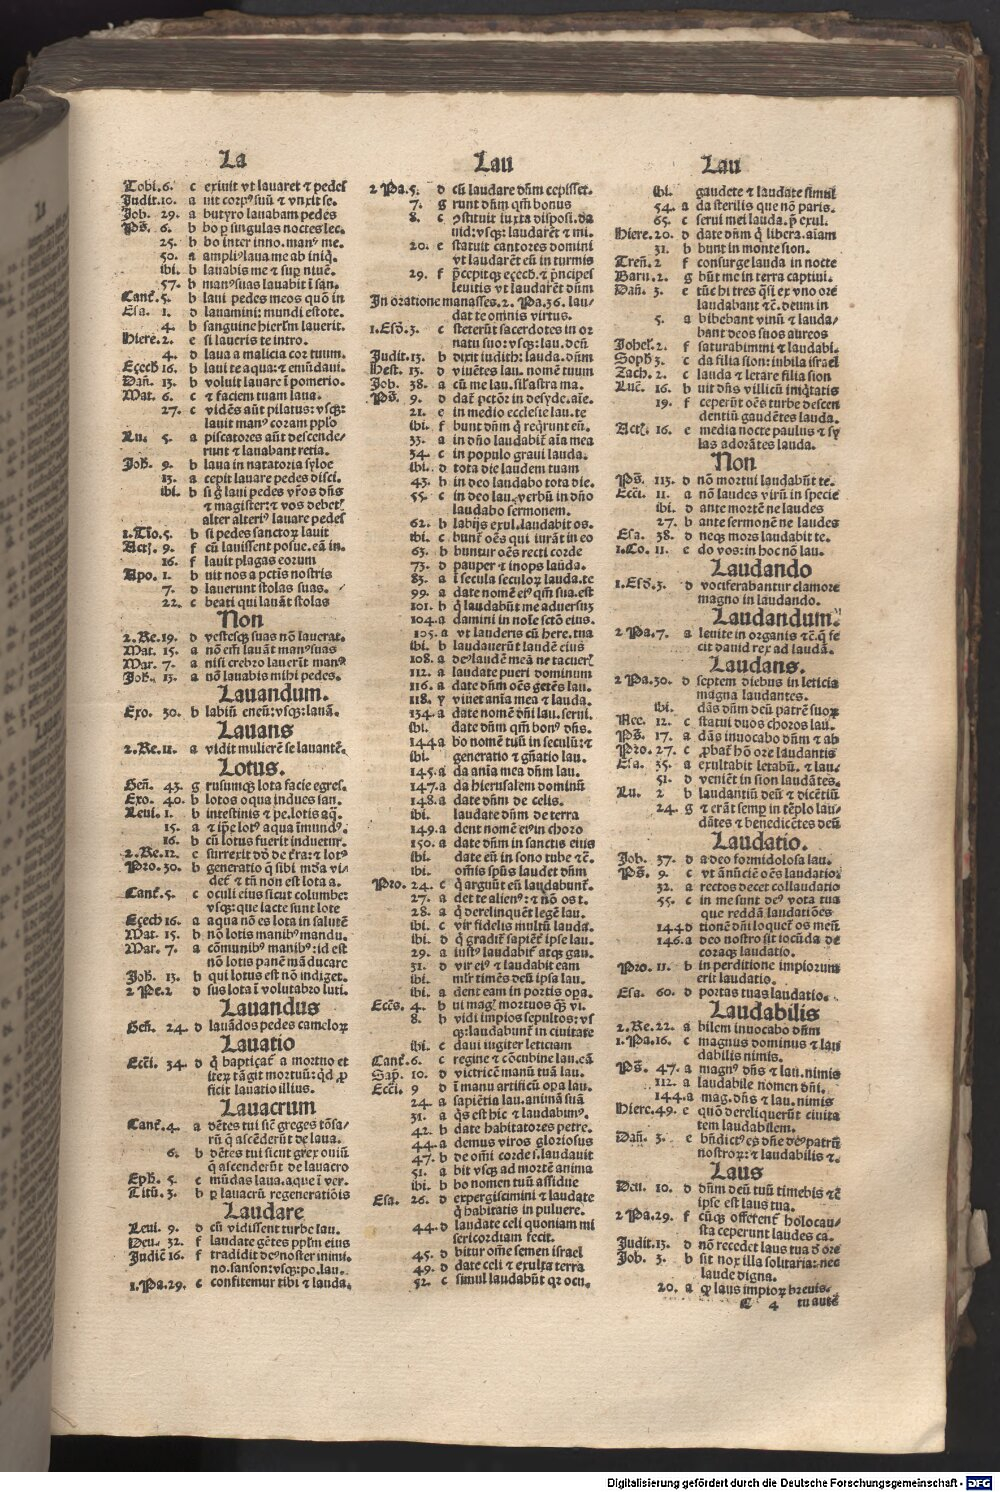 La
Tobi. 6. c exiuit vt lauaret ⁊ pedes
Judit. 10. a uit corpꝰ suū ⁊ vnxit se.
Job. 29. a butyro lauabam pedes
Ps̄. 6. b bo ꝑ singulas noctes lec.
25. b bo inter inno. manꝰ me.
50. a ampliꝰ laua me ab iniq̄.
ibi. b lauabis me ⁊ suꝑ niuē.
57. b manꝰ suas lauabit ī san.
Cant̄. 5. b laui pedes meos quō in
Esa. 1. d lauamini: mundi estote.
4. b sanguine hierl̄m lauerit.
Hiere. 2. e si laueris te intro.
4. d laua a malicia cor tuum.
Eȥech 16. b laui te aqua: ⁊ emūdaui.
Dan̄. 13. b voluit lauare ī pomerio.
Mat. 6. c ⁊ faciem tuam laua.
27. c vidēs aūt pilatus: vsqꝫ:
lauit manꝰ coram pplo
Lu. 5. a piscatores aūt descende/
runt ⁊ lauabant retia.
Joh. 9. b laua in natatoria syloe
13. a cepit lauare pedes disci.
ibi. b si g̊ laui pedes vr̄os dn̄s
⁊ magister: ⁊ vos debet̄
alter alteriꝰ lauare pedes
1. Tīo. 5. b si pedes sanctoꝝ lauit
Act. 9. f cū lauissent posue. eā in.
16. f lauit plagas eorum
Apo. 1. b uit nos a pctīs nostris
7. d lauerunt stolas suas.
22. c beati qui lauāt stolas
Non
2. Re. 19. d vestesqꝫ suas nō lauerat.
Mat. 15. a nō em̄ lauāt manꝰ suas
Mar. 7. a nisi crebro lauerūt manꝰ
Joh. 13. a nō lauabis mihi pedes.
Lauandum.
Exo. 30. b labiū eneū: vsqꝫ: lauā.
Lauans
2. Re. 11. a vidit mulierē se lauantē.
Lotus.
Gen̄. 43. g rusumqꝫ lota facie egres.
Exo. 40. b lotos oqua indues san.
Leui. 1. b intestinis ⁊ pe. lotis aq̄.
15. a ⁊ ip̄e lotꝰ aqua īmundꝰ.
16. b cū lotus fuerit induetur.
2. Re. 12. c surrexit dd̄ de t̄ra: ⁊ lotꝰ
Pro. 30. b generatio q̄ sibi mūda vi/
det̄ ⁊ tn̄ non est lota a.
Cant̄. 5. c oculi eius sicut columbe:
vsqꝫ: que lacte sunt lote
Eȥech 16. a aqua nō es lota in salutē
Mat. 15. b nō lotis manibꝰ mandu.
Mar. 7. a cōmunibꝰ manibꝰ: id est
nō lotis panē māducare
Joh. 13. b qui lotus est nō indiget.
2 Pe. 2 d sus lota ī volutabro luti.
Lauandus
Gen̄. 24. d lauādos pedes cameloꝝ
Lauatio
Ecci. 34. d q̄ baptiçat̄ a mortuo et
iteꝝ tāgit mortuū: qd ꝓ
ficit lauatio illius.
Lauacrum
Cant̄. 4. a dētes tui sic̄ greges tōsa/
rū q̄ ascēderūt de laua.
6. b dētes tui sicut grex ouiū
q̄ ascenderūt de lauacro
Eph. 5. c mūdas laua. aque ī ver.
Titū. 3. b ꝑ lauacrū regeneratiōis
Laudare
Leui. 9. d cū vidissent turbe lau.
Deu. 32. f laudate gētes ppl̄m eius
Judic̄ 16. f tradidit deꝰ noster inimi.
no. sanson: vsqꝫ: po. lau.
1. Pa. 29. c confitemur tibi ⁊ lauda.
Lau
2 Pa. 5. d cū laudare dn̄m cepisset.
7. g runt dn̄m qm̄ bonus
8. c ꝯstituit iuxta disposi. da
uid: vsqꝫ: laudarēt ⁊ mi.
20. e statuit cantores domini
vt laudarēt eū in turmis
29. f p̄cepitqꝫ eȥech. ⁊ p̄ncipes
leuitis vt laudarēt dn̄m
In oratione manasses. 2. Pa. 36. lau/
dat te omnis virtus.
1. Esd̄. 3. c steterūt sacerdotes in or
natu suo: vsqꝫ: lau. deū
Judit. 13. b dixit iudith: lauda. dn̄m
Hest. 13. d viuētes lau. nomē tuum
Job. 38. a cū me lau. sil̄ astra ma.
Ps̄. 9. d dat̄ pctōr in desyde. aīe.
21. e in medio ecclesie lau. te
ibi. f bunt dn̄m q̄ reqrunt eū.
33. a in dn̄o laudabit̄ aīa mea
34. c in populo graui lauda.
ibi. d tota die laudem tuam
43. b in deo laudabo tota die.
55. c in deo lau. verbū in dn̄o
laudabo sermonem.
62. b labijs exul. laudabit os.
ibi. c bunt̄ oēs qui iurāt in eo
63. b buntur oēs recti corde
73. d pauper ⁊ inops lauda.
83. a ī secula seculoꝝ lauda. te
99. a date nomē eiꝰ qm̄ sua. est
101. b q̄ laudabūt me aduersuꝫ
104. a damini in noīe sctō eius.
105. a vt lauderis cū here. tua
ibi. b laudauerūt laudē eius
108. a deꝰ laudē meā ne tacuer̄
112. a laudate pueri dominum
116. a date dn̄m oēs gētēs lau.
118. y viuet anīa mea ⁊ lauda.
134. a date nomē dn̄i lau. serui.
ibi. date dn̄m qm̄ bonꝰ dn̄s.
144. a bo nomē tuū in seculū: ⁊
ibi. generatio ⁊ gn̄atio lau.
145. a da anīa mea dn̄m lau.
147. a da hierusalem dominū
148. a date dn̄m de celis.
ibi. laudate dn̄m de terra
149. a dent nomē eiꝰ in choro
150. a date dn̄m in sanctis eius
ibi. date eū in sono tube ⁊c̄.
ibi. omīs spūs laudet dn̄m
Pro. 24. c q̄ arguūt eū laudabunt̄.
27. a det te alienꝰ: ⁊ nō os t.
28. a q̄ derelinquēt legē lau.
ibi. c vir fidelis multū lauda.
ibi. d q̄ gradit̄ sapiēt̄ ipse lau.
29. a iustꝰ laudabit̄ atqꝫ gau.
31. d vir eiꝰ ⁊ laudabit eam
ibi. ml̄r timēs deū ipsa lau.
ibi. a dent eam in portis opa.
Eccs̄. 4. b ui magꝭ mortuos qꝫ vi.
8. b vidi impios sepultos: vs
qꝫ: laudabunt̄ in ciuitate
ibi. c daui iugiter leticiam
Cant̄. 6. c regine ⁊ cōcubine lau. eā
Sap̄. 10. d victricē manū tuā lau.
Ecci. 9 d ī manu artificū opa lau.
24. a sapiētia lau. animā suā
31. a q̄s est hic ⁊ laudabimꝰ.
42. b date habitatores petre.
44. a demus viros gloriosus
47. b de om̄i corde s. laudauit
51. a bit vsqꝫ ad mortē anima
ibi. b bo nomen tuū assidue
Esa. 26. d expergiscimini ⁊ laudate
q̄ habitatis in puluere.
44. d laudate celi quoniam mi
sericordiam fecit.
45. d bitur om̄e semen israel
49. d date celi ⁊ exulta terra
52. c simul laudabūt qꝛ ocu.
Lau
ibi. gaudete ⁊ laudate simul
54. a da sterilis que nō paris.
65. c serui mei lauda. p̄ exul.
Hiere. 20. d date dn̄m q̄ libera. aīam
31. b bunt in monte sion.
Tren̄. 2 f consurge lauda in nocte
Baru. 2. g būt me in terra captiui.
Dan̄. 3. e tūc hi tres q̄si ex vno ore
laudabant ⁊c̄. deum in
5. a bibebant vinū ⁊ lauda/
bant deos suos aureos
Johel. 2. f saturabimini ⁊ laudabi.
Soph 3. c da filia sion: iubila israel
Zach. 2. c lauda ⁊ letare filia sion
Luc̄. 16. b uit dn̄s villicū iniq̄tatis
19. f ceperūt oēs turbe descen
dentiū gaudētes lauda.
Act. 16. e media nocte paulus ⁊ sy
las adorātes lauda.
Non
Ps̄. 113. d nō mortui laudabūt te.
Ecci. 11. a nō laudes virū in specie
ibi. d ante mortē ne laudes
27. b ante sermonē ne laudes
Esa. 38. d neqꝫ mors laudabit te.
1. Co. 11. c do vos: in hoc nō lau.
Laudando
1. Esd̄. 3. d vociferabantur clamore
magno in laudando.
Laudandum.
2 Pa. 7. a leuite in organis ⁊c̄. q̄ fe
cit dauid rex ad laudā.
Laudans.
2 Pa. 30. d septem diebus in leticia
magna laudantes.
ibi. dās dn̄m deū patrē suoꝝ
Nee. 12. c statui duos choros lau.
Ps̄. 17. a dās inuocabo dn̄m ⁊ ab
Pro. 27. c ꝓbat̄ hō ore laudantis
Esa. 35. a exultabit letabū. ⁊ lau/
51. d veniēt in sion laudātes.
Lu. 2 b laudantiū deū ⁊ dicētiū
24. g ⁊ erāt semꝑ in tēplo lau/
dātes ⁊ benedicētes deū
Laudatio.
Job. 37. d a deo formidolosa lau.
Ps̄. 9. c vt ānūciē oēs laudatiōs
32. a rectos decet collaudatio
55. c in me sunt deꝰ vota tua
que reddā laudatiōes
144 d tionē dn̄i loquet̄ os meū
146. a deo nostro sit iocūda de
coraqꝫ laudatio.
Pro. 11. b in perditione impiorum
erit laudatio.
Esa. 60. d portas tuas laudatio.
Laudabilis
2. Re. 22. a bilem inuocabo dn̄m
1. Pa. 16. c magnus dominus ⁊ lau
dabilis nimis.
Ps̄. 47. a magnꝰ dn̄s ⁊ lau. nimis
112. a laudabile nomen dn̄i.
144. a mag. dn̄s ⁊ lau. nimis
Hiere. 49. e quō dereliquerūt ciuita
tem laudabilem.
Dan̄. 3. e bn̄dictꝰ es dn̄e deꝰ patrū
nostroꝝ: ⁊ laudabilis ⁊.
Laus
Deu. 10. d dn̄m deū tuū timebis ⁊c̄
ipse est laus tua.
2 Pa. 29. f cūqꝫ offerent̄ holocau/
sta ceperunt laudes ca.
Judit. 13. d nō recedet laus tua d̄ ore
Job. 3. b sit nox illa solitaria: nec
laude digna.
20. a ꝙ laus impioꝝ breuis.
C 4 tu autē
Digitalisierung gefördert durch die Deutsche Forschungsgemeinschaft - DFG